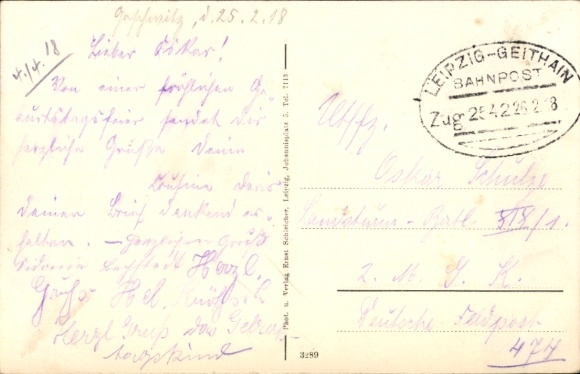 Gaschwitz, d. 25.2.18
4./4. 18
Lieber Oskar!
Von einer fröhlichen Ge-
burtstagsfeier sendet dir
herzliche Grüße deine
Cousine Doris
Deinen Brief dankend er-
halten. – Herzlichen Gruß
Herzl.
Gruß Hel.
Herzl Gruß das Geburts-
tagskind
Phot. u. Verlag Ernst Schleicher, Leipzig, Johannisplatz 5. Tel. 7113
3289
LEIPZIG-GEITHAIN
BAHNPOST
Zug 254 2 26.2.18
Utffz.
Oskar Schulze
Landsturm-Batl. XIX/1.
2. M. G. K.
Deutsche Feldpost
477